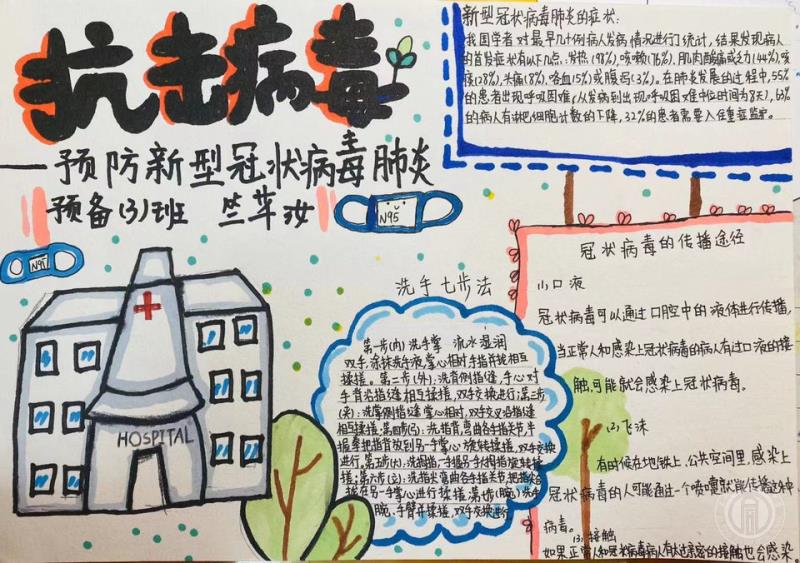 抗击病毒
—预防新型冠状病毒肺炎
预备(3)班 竺苹汝
N95
N95
HOSPITAL
新型冠状病毒肺炎的症状:
我国学者对最早几十例病人发病情况进行了统计,结果发现病人
的首发症状有以下几点:发热(98%),咳嗽(76%),肌肉酸痛或乏力(44%),咳
痰(28%),头痛(8%),咯血(5%)或腹泻(3%)。在肺炎发展的过程中,55%
的患者出现呼吸困难(从发病到出现呼吸困难中位时间为8天),63%
的病人有淋巴细胞计数的下降,32%的患者需要入住重症监护。
洗手七步法
第一步(内)洗手掌 流水湿润
双手,涂抹洗手液,掌心相对手指并拢相互
揉搓。第二步(外):洗背侧指缝,手心对
手背沿指缝相互揉搓,双手交换进行;第三步
(夹):洗掌侧指缝掌心相对,双手交叉沿指缝
相互揉搓;第四步(弓):洗指背弯曲各手指关节,半
握拳把指背放到另一手掌心旋转揉搓,双手交换
进行。第五步(大):洗拇指一手握另一手拇指旋转揉
搓;第六步(立):洗指尖弯曲各手指关节,把指尖合
拢在另一手掌心进行揉搓,第七步(腕):洗手
腕、手臂并揉搓,双手交换进行
冠状病毒的传播途径
(1)口液
冠状病毒可以通过口腔中的液体进行传播,
当正常人和感染上冠状病毒的病人有过口液的接
触,可能就会感染上冠状病毒。
(2)飞沫
有时候在地铁上,公共空间里,感染上
冠状病毒的人可能通过一个喷嚏就能传播这种
病毒。
(3)接触
如果正常人和冠状病毒病人有过亲密的接触也会感染。